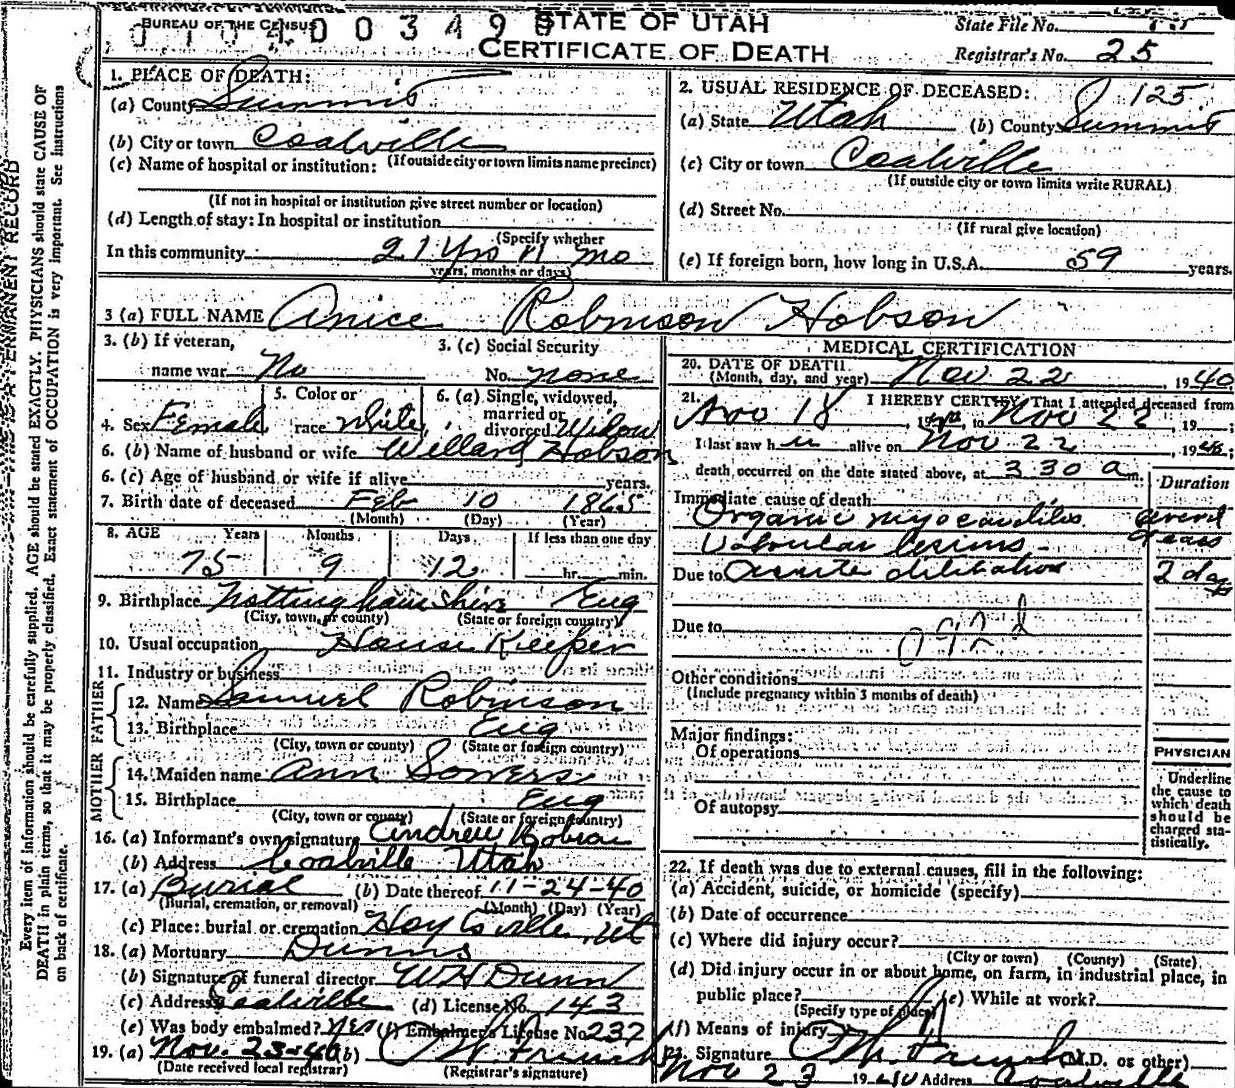 BUREAU OF THE CENSUS
STATE OF UTAH
CERTIFICATE OF DEATH
State File No.
Registrar's No. 25
1. PLACE OF DEATH:
(a) County Summit
(b) City or town Coalville
(c) Name of hospital or institution: (If outside city or town limits name precinct)
(If not in hospital or institution give street number or location)
(d) Length of stay: In hospital or institution
(Specify whether
In this community 21 yrs 11 mo
years, months or days)
2. USUAL RESIDENCE OF DECEASED: 125
(a) State Utah (b) County Summit
(c) City or town Coalville
(If outside city or town limits write RURAL)
(d) Street No.
(If rural give location)
(e) If foreign born, how long in U.S.A. 59 years.
3 (a) FULL NAME Anice Robinson Hobson
3. (b) If veteran,
name war No
3. (c) Social Security
No. none
4. Sex Female
5. Color or
race white
6. (a) Single, widowed,
married or
divorced Widow
6. (b) Name of husband or wife Willard Hobson
6. (c) Age of husband or wife if alive years.
7. Birth date of deceased Feb 10 1865
(Month) (Day) (Year)
8. AGE Years Months Days If less than one day
75 9 12 hr. min.
9. Birthplace Nottinghamshire Eng
(City, town, or county) (State or foreign country)
10. Usual occupation House Keeper
11. Industry or business
FATHER
12. Name Samuel Robinson
13. Birthplace Eng
(City, town or county) (State or foreign country)
MOTHER
14. Maiden name Ann Sowers
15. Birthplace Eng
(City, town or county) (State or foreign country)
16. (a) Informant's own signature Andrew Hobson
(b) Address Coalville Utah
17. (a) Burial (b) Date thereof 11-24-40
(Burial, cremation, or removal) (Month) (Day) (Year)
(c) Place: burial or cremation Hoytsville, Ut
18. (a) Mortuary Dunns
(b) Signature of funeral director W H Dunn
(c) Address Coalville (d) License No. 143
(e) Was body embalmed? Yes (f) Embalmer's License No. 237
19. (a) Nov. 23-40 (b)
(Date received local registrar) (Registrar's signature)
MEDICAL CERTIFICATION
20. DATE OF DEATH
(Month, day, and year) Nov 22, 1940
21. I HEREBY CERTIFY, That I attended deceased from
Nov 18, 1940 to Nov 22, 19;
I last saw her alive on Nov 22, 1940;
death occurred on the date stated above, at 3 30 a m.
Duration
Immediate cause of death
Organic myocarditis several
Valvular lesions - years
Due to Acute dilitation 2 days
Due to
092d
Other conditions
(Include pregnancy within 3 months of death)
Major findings:
Of operations
Of autopsy
PHYSICIAN
Underline
the cause to
which death
should be
charged sta-
tistically.
22. If death was due to external causes, fill in the following:
(a) Accident, suicide, or homicide (specify)
(b) Date of occurrence
(c) Where did injury occur?
(City or town) (County) (State)
(d) Did injury occur in or about home, on farm, in industrial place, in
public place? (e) While at work?
(Specify type of place)
(f) Means of injury
23. Signature (M.D. or other)
Nov 23 1940 Address Coalville
Every item of information should be carefully supplied. AGE should be stated EXACTLY. PHYSICIANS should state CAUSE OF
DEATH in plain terms, so that it may be properly classified. Exact statement of OCCUPATION is very important. See instructions
on back of certificate.
IS A PERMANENT RECORD